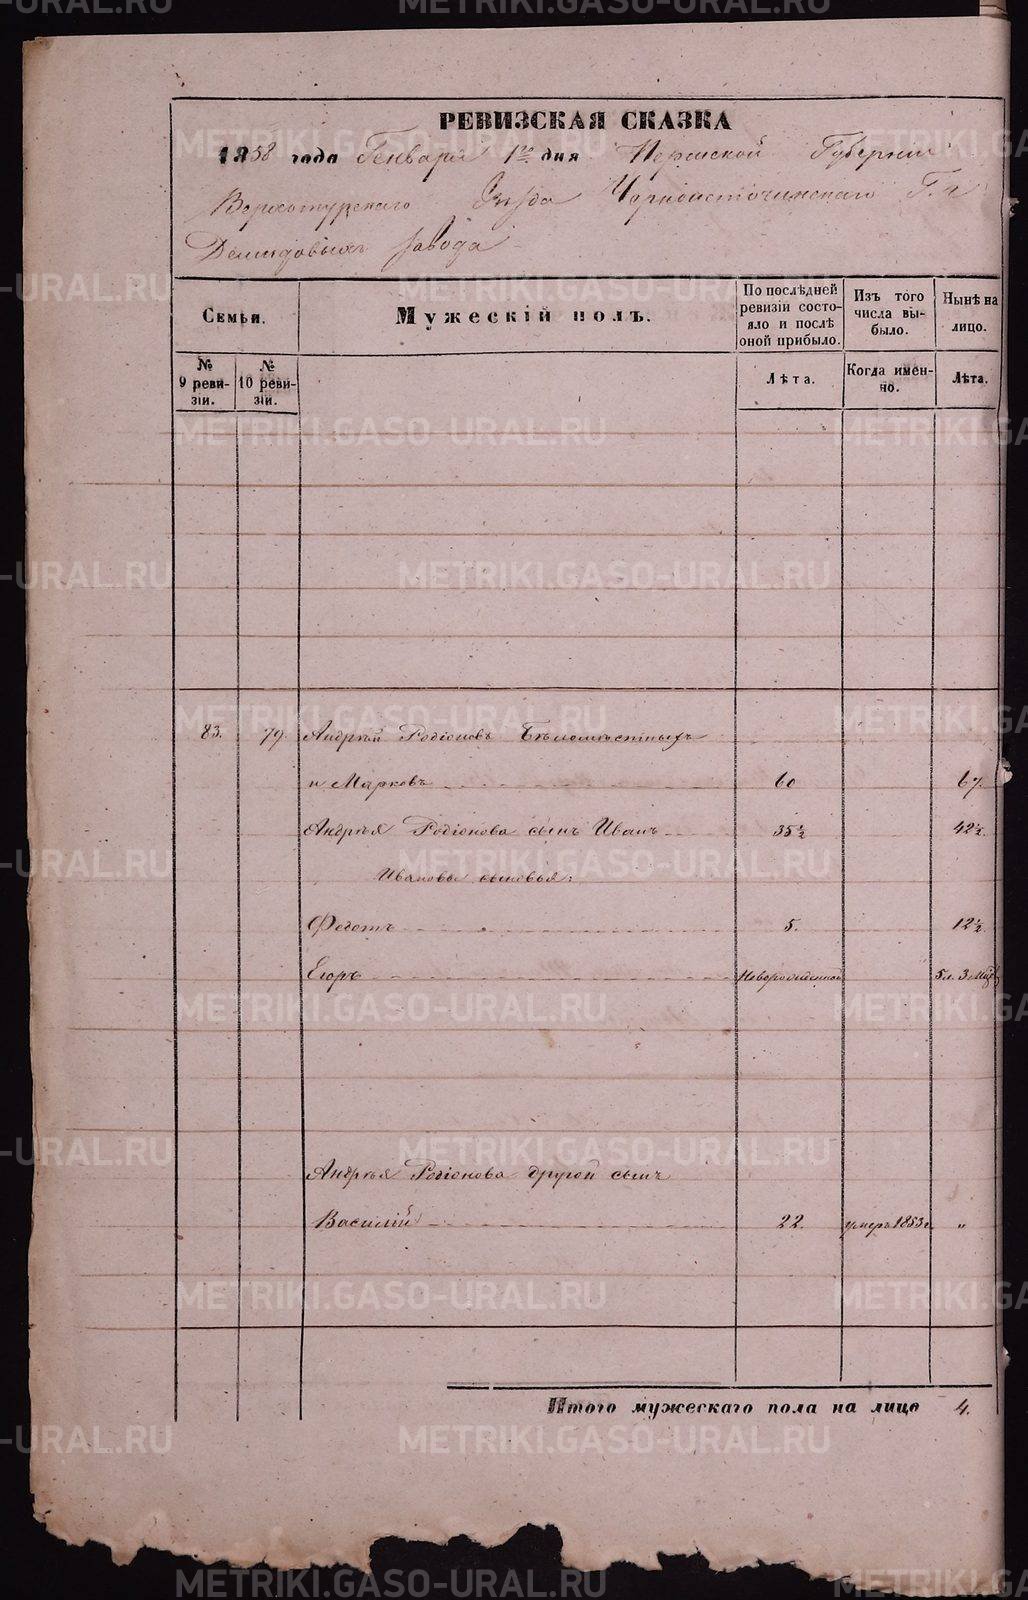 РЕВИЗСКАЯ СКАЗКА
1858 года Генваря 1го дня Пермской Губернии
Верхотурскаго Уѣзда Черноисточинскаго Г. г
Демидовыхъ завода
Семьи.
Мужескій полъ.
По послѣдней ревизіи состояло и послѣ оной прибыло.
Изъ того числа выбыло.
Нынѣ на лицо.
№ 9 ревизіи.
№ 10 ревизіи.
Лѣта.
Когда именно.
Лѣта.
83. 79. Андрей Родіоновъ Бѣломѣстныхъ
и Марковъ 60 67.
Андрѣя Родіонова сынъ Иванъ 35½ 42½.
Ивановы сыновья:
Федотъ 5. 12½
Егоръ Новорожденной 5 л. 3 мѣс
Андрѣя Родіонова другой сынъ
Василій 22. умеръ 1853 г. "
Итого мужескаго пола на лицо 4.
METRIKI.GASO-URAL.RU